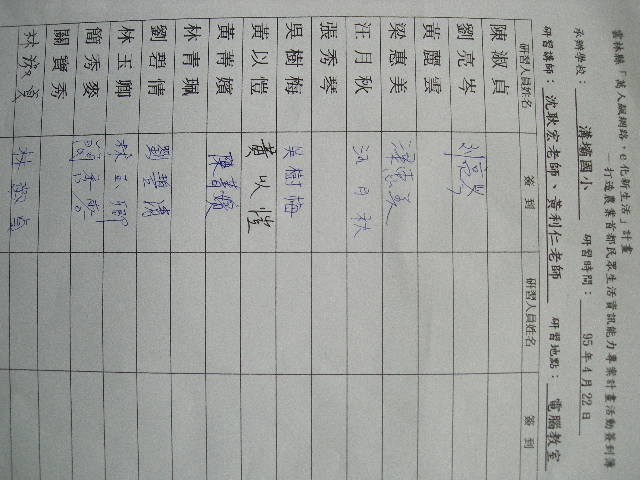 雲林縣「萬人飆網路，e化新生活」計畫
—打造農業首都民眾生活資訊能力專案計畫活動簽到簿
承辦學校： 溝壩國小 研習時間： 95年4月22日
研習講師：沈耿宏老師、黃利仁老師 研習地點： 電腦教室
研習人員姓名 簽到 研習人員姓名 簽到
陳淑貞
劉亮岑 劉亮岑
黃麗雲
梁惠美 梁惠美
汪月秋 汪月秋
張秀琴
吳樹梅 吳樹梅
黃以愷 黃以愷
黃菁嬪 陳菁嬪
林青珮
劉碧情 劉碧情
林玉卿 林玉卿
簡秀麥 簡秀麥
關寶秀